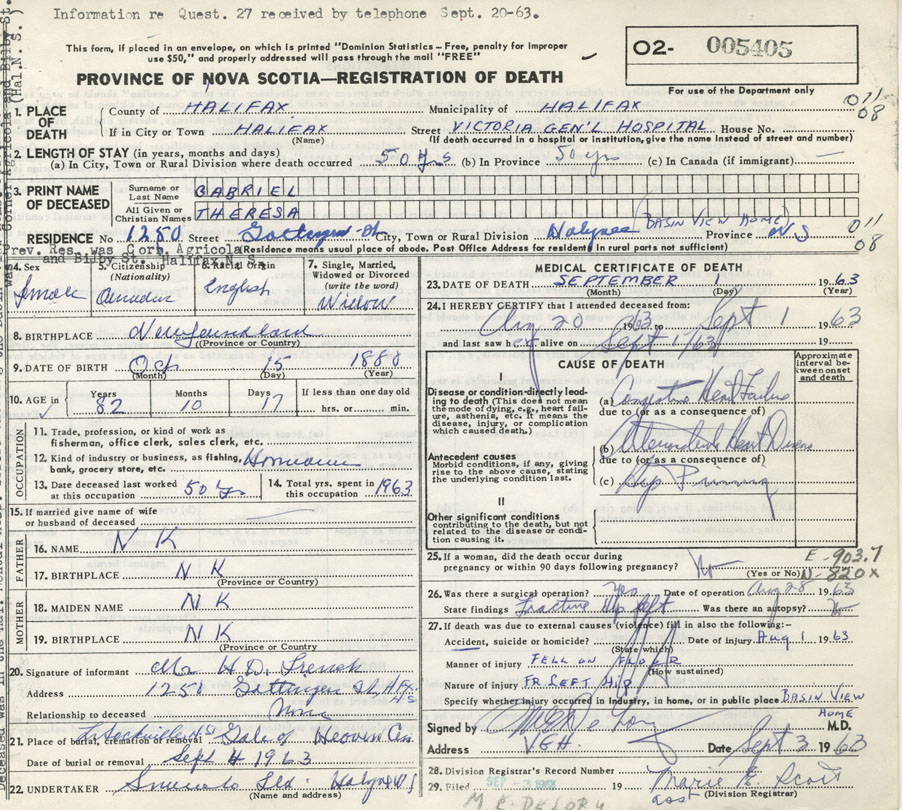 Information re Quest. 27 received by telephone Sept. 20-63.
This form, if placed in an envelope, on which is printed "Dominion Statistics – Free, penalty for improper
use $50," and properly addressed will pass through the mail "FREE"
O2- 005405
For use of the Department only
PROVINCE OF NOVA SCOTIA—REGISTRATION OF DEATH
1. PLACE OF DEATH County of HALIFAX Municipality of HALIFAX 011
If in City or Town HALIFAX Street VICTORIA GEN'L HOSPITAL House No. 08
(Name) (If death occurred in a hospital or institution, give the name instead of street and number)
2. LENGTH OF STAY (in years, months and days)
(a) In City, Town or Rural Division where death occurred 50 yrs (b) In Province 50 yrs (c) In Canada (if immigrant) —
3. PRINT NAME OF DECEASED Surname or Last Name GABRIEL
All Given or Christian Names THERESA
RESIDENCE No 1250 Street Gottingen St City, Town or Rural Division Halifax (BASIN VIEW HOME) Province NS 011
(Residence means usual place of abode. Post Office Address for resident in rural parts not sufficient) 08
Prev. res. was Corn. Agricola
and Bilby St. Halifax N. S.
4. Sex Female 5. Citizenship (Nationality) Canadian 6. Racial Origin English 7. Single, Married, Widowed or Divorced (write the word) Widow
8. BIRTHPLACE Newfoundland
(Province or Country)
9. DATE OF BIRTH Oct 15 1880
(Month) (Day) (Year)
10. AGE in Years 82 Months 10 Days 17 If less than one day old hrs. or min.
OCCUPATION
11. Trade, profession, or kind of work as fisherman, office clerk, sales clerk, etc.
12. Kind of industry or business, as fishing, bank, grocery store, etc.
13. Date deceased last worked at this occupation 50 yrs 14. Total yrs. spent in this occupation 1963
15. If married give name of wife or husband of deceased —
FATHER
16. NAME N K
17. BIRTHPLACE N K
(Province or Country)
MOTHER
18. MAIDEN NAME N K
19. BIRTHPLACE N K
(Province or Country)
20. Signature of informant Mr H.D. French
Address 1250 Gottingen St Hfx NS
Relationship to deceased None
21. Place of burial, cremation or removal Sackville NS Gate of Heaven Cem.
Date of burial or removal Sept 4 1963
22. UNDERTAKER Snows Ltd. Halifax NS
(Name and address)
MEDICAL CERTIFICATE OF DEATH
23. DATE OF DEATH SEPTEMBER 1 1963
(Month) (Day) (Year)
24. I HEREBY CERTIFY that I attended deceased from:
Aug 20 1963 to Sept 1 1963
and last saw her alive on Sept 1/63 19
CAUSE OF DEATH
Approximate interval between onset and death
I
Disease or condition directly leading to death (This does not mean the mode of dying, e.g., heart failure, asthenia, etc. It means the disease, injury, or complication which caused death.)
(a) Congestive Heart Failure
due to (or as a consequence of)
Antecedent causes
Morbid conditions, if any, giving rise to the above cause, stating the underlying condition last.
(b) Heart Disease
due to (or as a consequence of)
(c) Hip Pinning
II
Other significant conditions contributing to the death, but not related to the disease or condition causing it.
25. If a woman, did the death occur during pregnancy or within 90 days following pregnancy? No (Yes or No)
E-903.7
N-820X
26. Was there a surgical operation? Yes Date of operation Aug 28 1963
State findings Fracture Hip left Was there an autopsy? No
27. If death was due to external causes (violence) fill in also the following:–
Accident, suicide or homicide? Date of injury Aug 1 1963
(State which)
Manner of injury FELL ON FLOOR
(How sustained)
Nature of injury FR LEFT HIP
Specify whether injury occurred in industry, in home, or in public place BASIN VIEW HOME
Signed by M.D.
Address V.G.H. Date Sept 3 1963
28. Division Registrar's Record Number
29. Filed SEP - 3 1963 19 Marie E. Scott
asst (Division Registrar)
M. E. DELORY